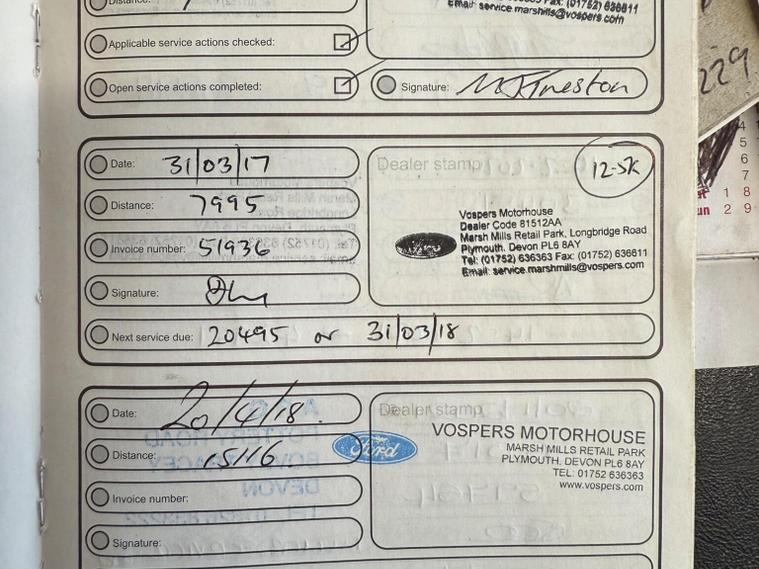 Distance:
Fax: (01752) 636611
Email: service.marshmills@vospers.com
Applicable service actions checked:
Open service actions completed:
Signature:
229
Date: 31/03/17
Dealer stamp
12.5K
Distance: 7995
Invoice number: 51936
Vospers Motorhouse
Dealer Code 81512AA
Marsh Mills Retail Park, Longbridge Road
Plymouth. Devon PL6 8AY
Tel: (01752) 636363 Fax: (01752) 636611
Email: service.marshmills@vospers.com
Signature:
Next service due: 20495 or 31/03/18
4
5
6
7
1 8
un 2 9
Date: 20/4/18.
Dealer stamp
Distance: 15116.
Ford
VOSPERS MOTORHOUSE
MARSH MILLS RETAIL PARK
PLYMOUTH, DEVON PL6 8AY
TEL: 01752 636363
www.vospers.com
Invoice number:
Signature: